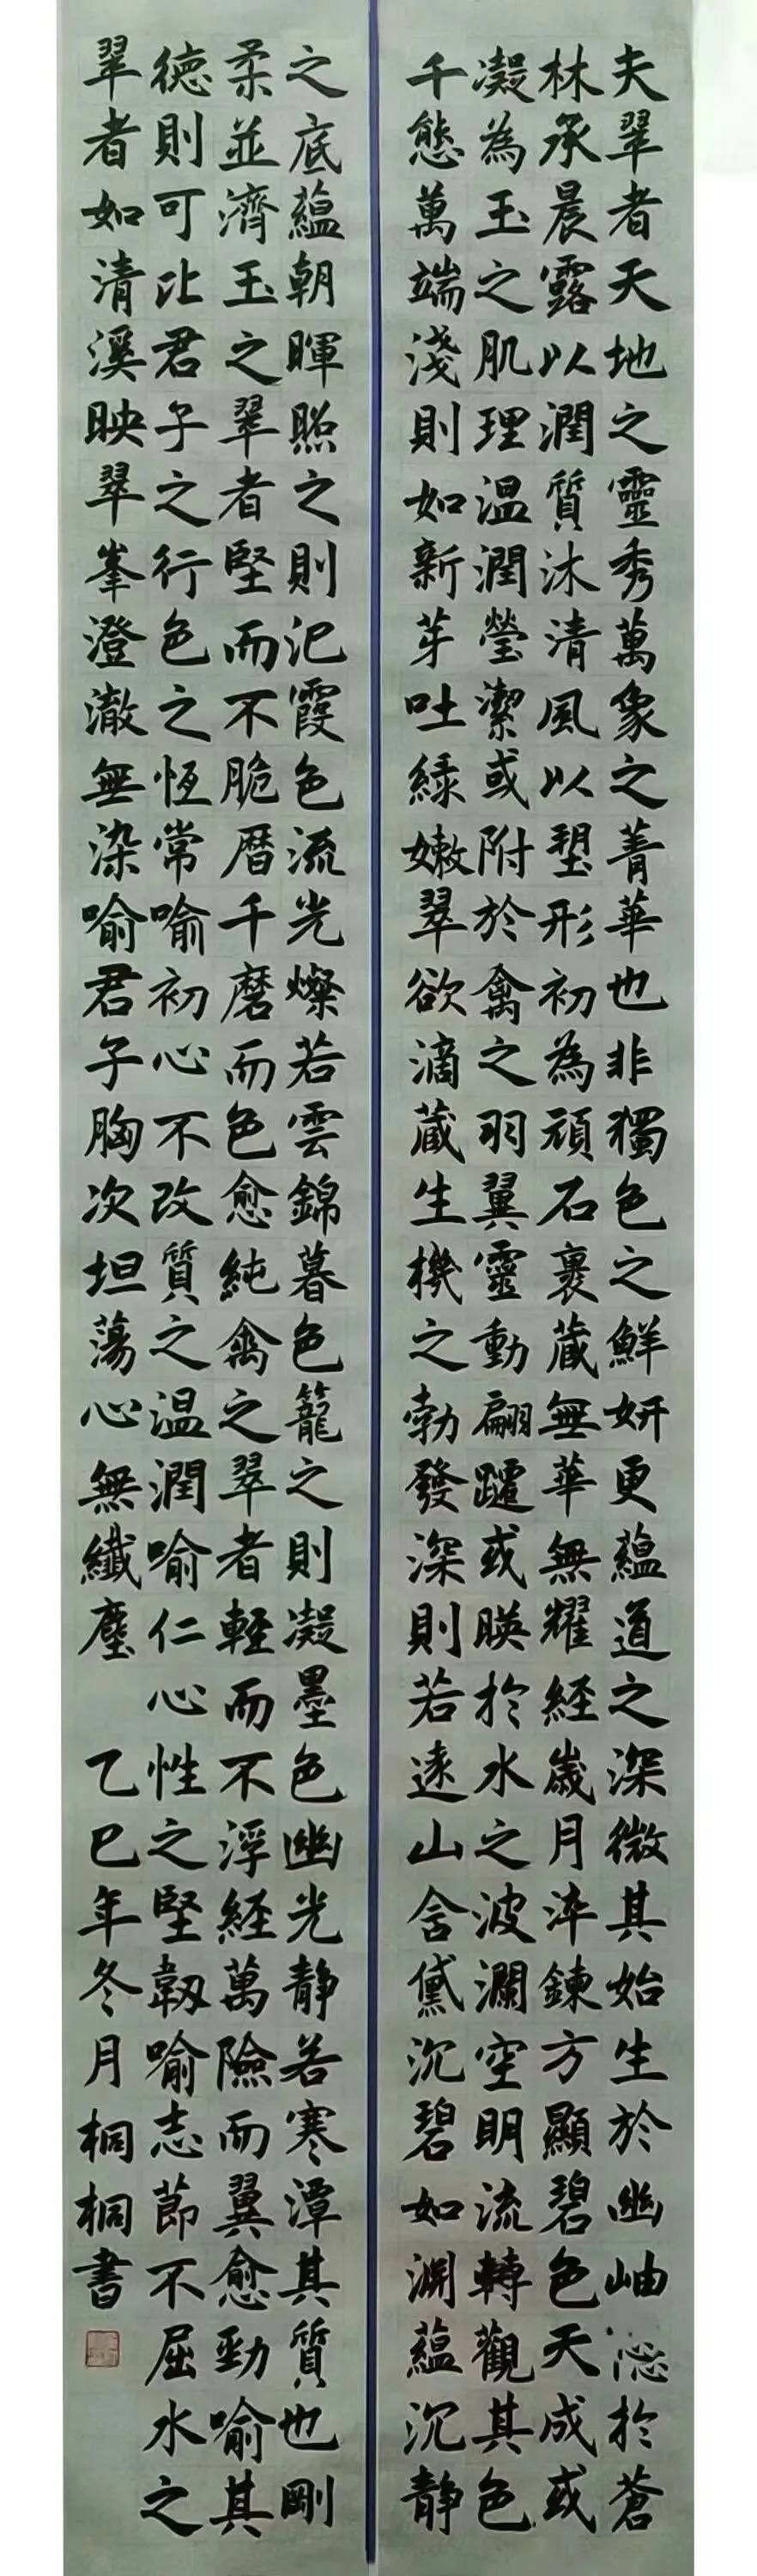 夫翠者天地之靈秀萬象之菁華也非獨色之鮮妍更蘊道之深微其始生於幽岫沁於蒼
林承晨露以潤質沐清風以塑形初為頑石裹蔵無華無耀経歲月淬鍊方顯碧色天成或
凝為玉之肌理温潤瑩潔或附於禽之羽翼靈動翩躚或映於水之波瀾空明流轉觀其色
千態萬端淺則如新芽吐綠嫩翠欲滴蔵生機之勃發深則若遠山含黛沉碧如淵蘊沉靜
之底蘊朝暉照之則氾霞色流光燦若雲錦暮色籠之則凝墨色幽光靜若寒潭其質也剛
柔並濟玉之翠者堅而不脆曆千磨而色愈純禽之翠者輕而不浮経萬險而翼愈勁喻其
德則可比君子之行色之恆常喻初心不改質之温潤喻仁心性之堅韌喻志節不屈水之
翠者如清溪映翠峯澄澈無染喻君子胸次坦蕩心無纖塵 乙巳年冬月桐桐書